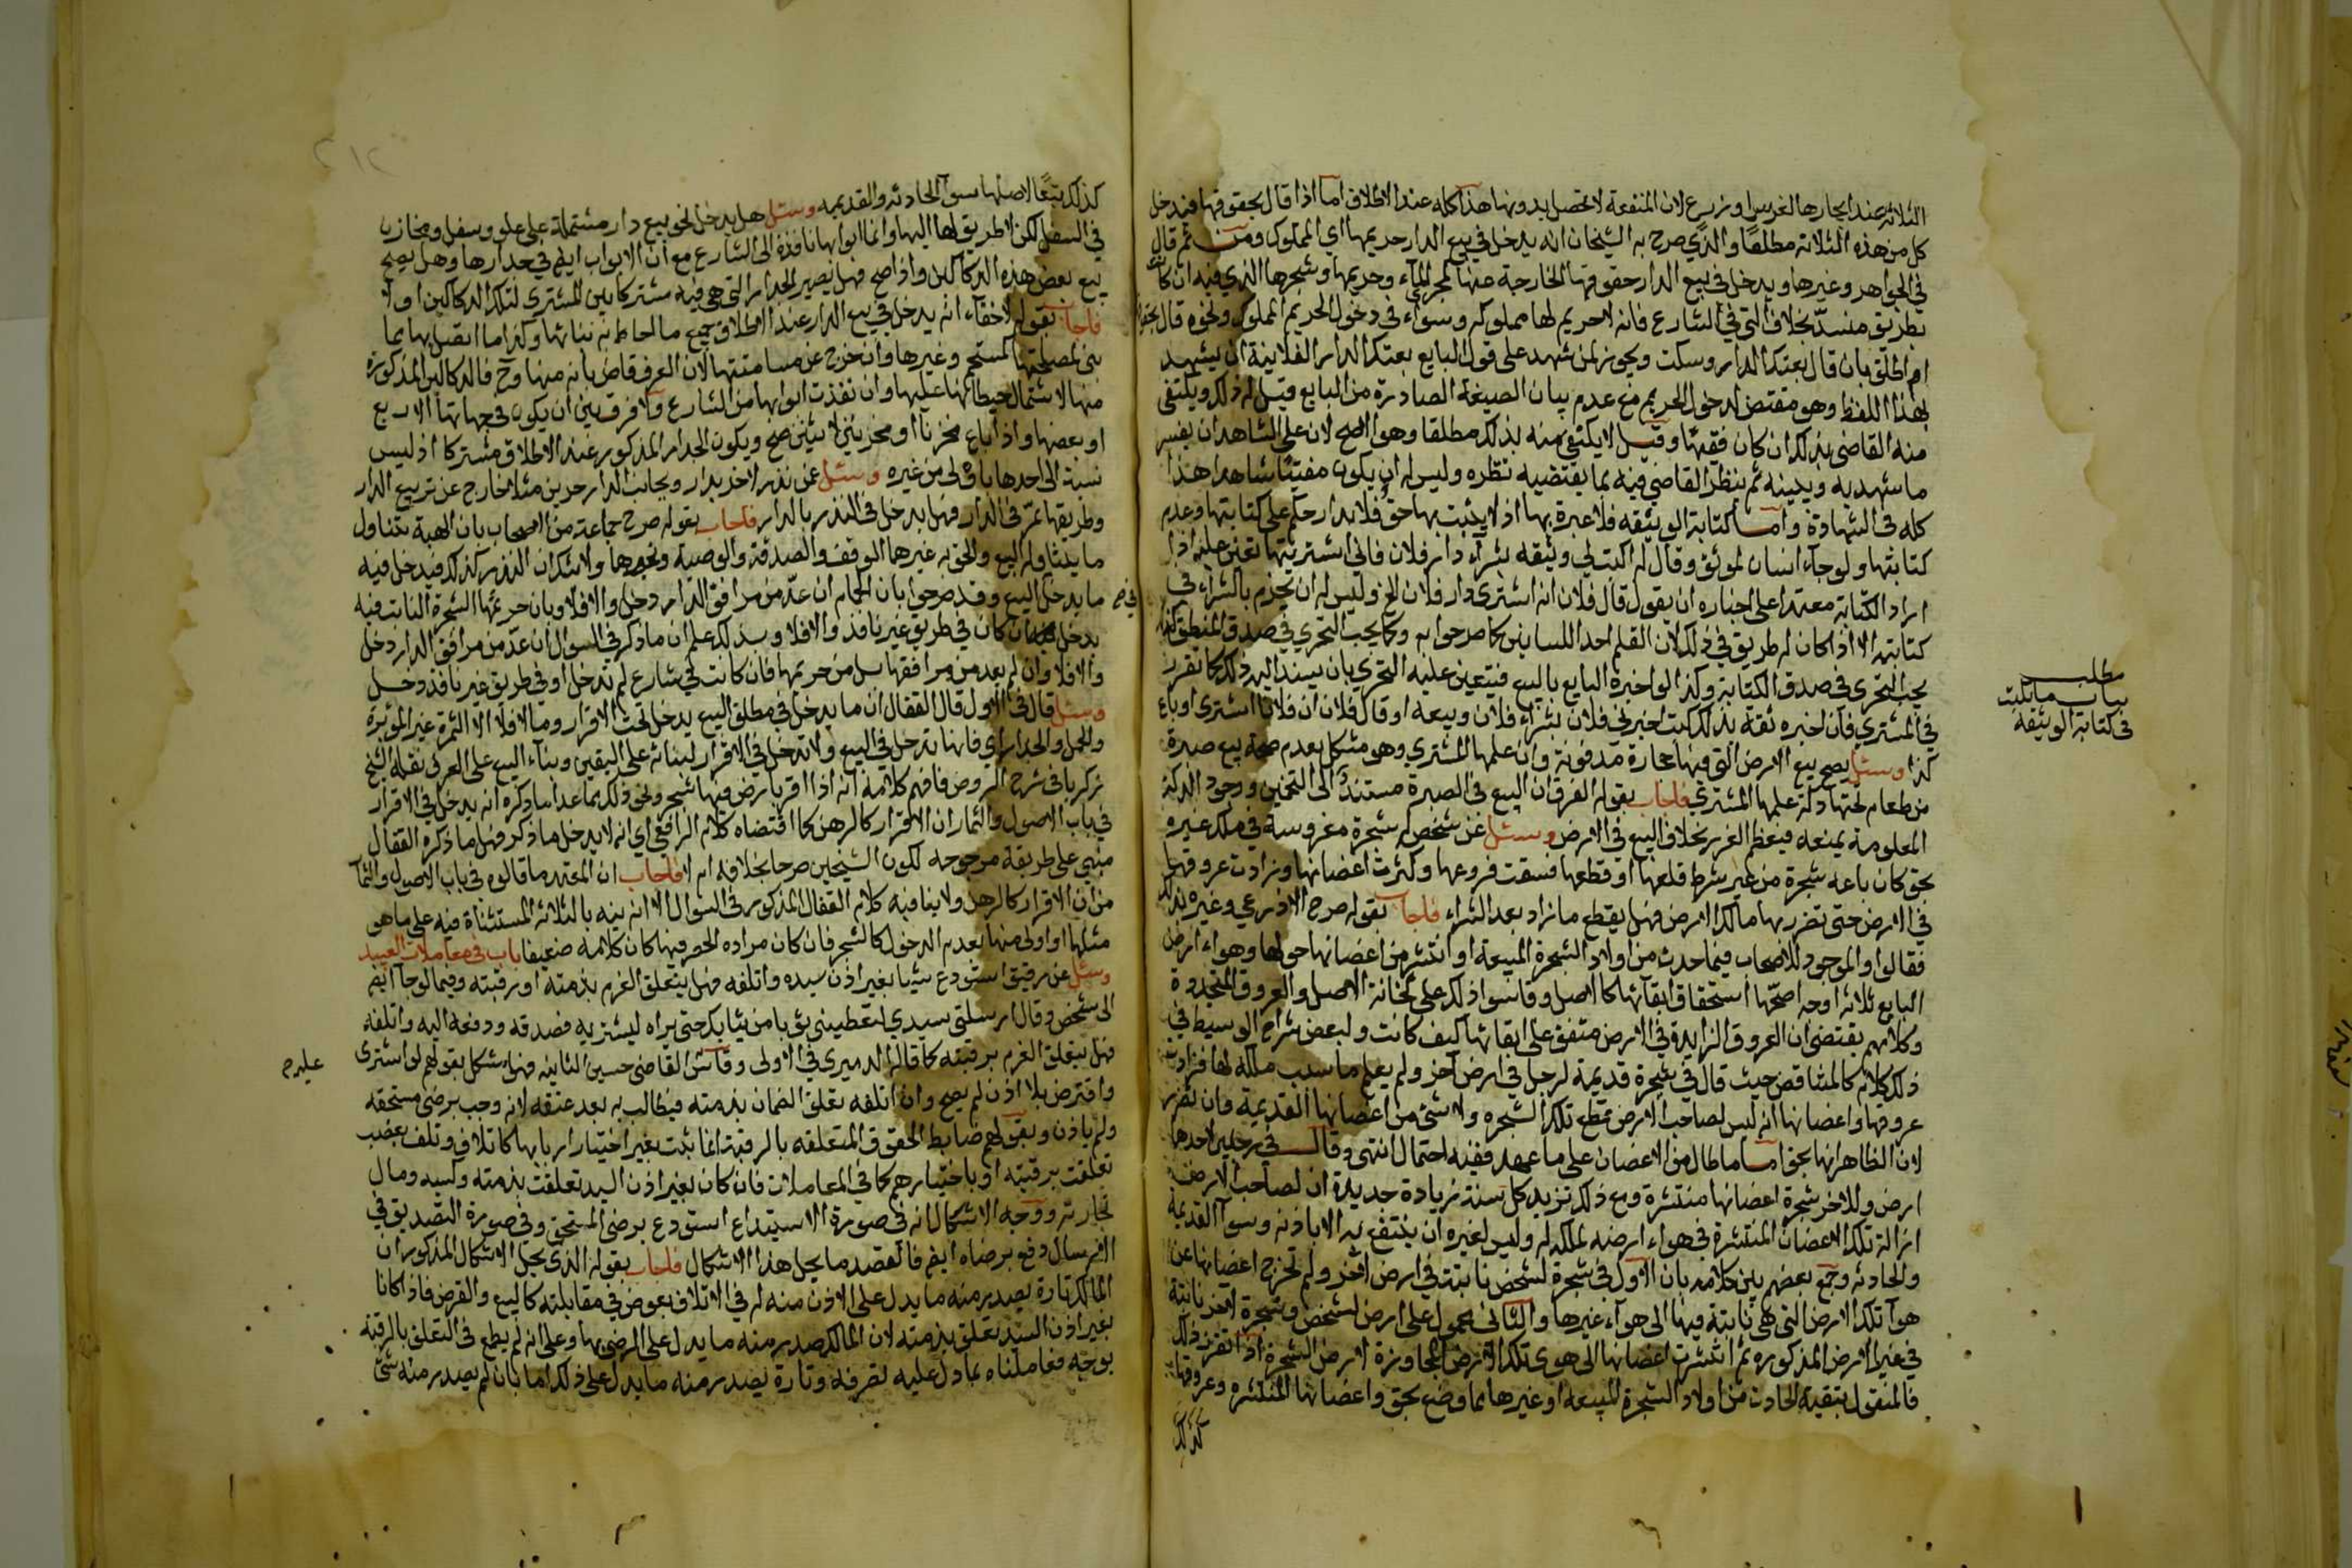 الثلاثة عند ايجارها لغرس او زرع لان المنفعة لا تحصل بدونها هذا كله عند الاطلاق اما اذا قال بحقوقها فيدخل
كل من هذه الثلاثة مطلقا والذي صرح به الشيخان انه يدخل في بيع الدار حريمها اي المملوك ومن ثم قال
في الجواهر وغيرها ويدخل في بيع الدار حقوقها الخارجة عنها كمجرى الماء وحريمها وشجرها الذي فيه ان كانت
بطريق منسد بخلاف التي في الشارع فانه لا حريم لها مملوكه وسواء في دخول الحريم المملوك ونحوه قال بحقوقها
ام اطلق بان قال بعتك الدار وسكت ويجوز لمن شهد على قول البايع بعتك الدار الفلانية ان يشهد
بهذا اللفظ وهو مقتض لدخول الحريم مع عدم بيان الصيغة الصادرة من البايع وقيل له ذلك ويكتفي
منه القاضي بذلك ان كان فقيها وقيل لا يكتفى منه بذلك مطلقا وهو الاصح لان على الشاهد ان يفسر
ما شهد به ويبينه ثم ينظر القاضي فيه بما يقتضيه نظره وليس له ان يكون مفتيا شاهدا هذا
كله في الشهادة واما كتابة الوثيقه فلا عبرة بها اذ لا يثبت بها حق فلا يدار حكم على كتابتها وعدم
كتابتها ولو جاء انسان لموثق وقال له اكتب لي وثيقه بشراء دار فلان فاني اشتريتها تعين عليه اذا
اراد الكتابة معتمدا على اخباره ان يقول قال فلان انه اشترى دار فلان الخ وليس له ان يجزم بالشراء في
كتابته الا اذا كان له طريق في ذلك لان القلم احد اللسانين كما صرحوا به وكما يجب التحري في صدق المنطق كذلك
يجب التحري في صدق الكتابة وكذا لو اخبره البايع بالبيع فيتعين عليه التحري بان يسند اليه ذلك كما تقرر
في المشتري فان اخبره ثقة بذلك كتب اخبرني فلان بشراء فلان وبيعه او قال فلان ان فلانا اشترى او باع
كذا وسئل يصح بيع الارض التي فيها حجارة مدفونة وان علمها المشتري وهو مشكل بعدم صحة بيع صبرة
من طعام تحتها دكة علمها المشتري فاجاب بقوله الفرق ان البيع في الصبرة مستند الى التخمين ووجود الدكة
المعلومة يمنعه فيعظم الغرر بخلاف البيع في الارض وسئل عن شخص له شجرة مغروسة في ملك غيره
بحق كان باعه شجرة من غير شرط قلعها او قطعها فسقت فروعها وكثرت اغصانها وزادت عروقها
في الارض حتى تضرر بها مالك الارض فهل يقطع ما زاد بعد الشراء فاجاب بقوله صرح الاذرعي وغيره بذلك
فقالوا والموجود للاصحاب فيما حدث من اولاد الشجرة المبيعة او انتشر من اغصانها حولها وهواء ارض
البايع ثلاثة اوجه اصحها استحقاق ابقائها كالاصل وقاسوا ذلك على ثخانة الاصل والعروق المتجددة
وكلامهم يقتضي ان العروق الزايدة في الارض متفق على ابقائها كيف كانت ولبعض شراح الوسيط في
ذلك كلام كالمناقض حيث قال في شجرة قديمة لرجل في ارض آخر ولم يعلم ما سبب ملكه لها فزادت
عروقها واغصانها انه ليس لصاحب الارض قطع تلك الشجره ولا شيء من اغصانها القديمة وان تضرر بها
لان الظاهر انها بحق اما ما طال من الاغصان على ما عهد ففيه احتمال انتهى وقال في رجلين لاحدهما
ارض وللاخر شجرة اغصانها منتشرة ومع ذلك تزيد كل سنة زيادة جديدة ان لصاحب الارض
ازالة تلك الاغصان المنتشرة في هواء ارضه لملكه له وليس لغيره ان ينتفع به الا باذنه وسواء القديمة
والحادثه وجمع بعضهم بين كلامه بان الاول في شجرة لشخص نابتة في ارض اخر ولم تخرج اغصانها عن
هواء تلك الارض التي هي نابتة فيها الى هواء غيرها والثاني محمول على ارض لشخص وشجرة لاخر نابتة
في غير الارض المذكوره ثم انتشرت اغصانها الى هوى تلك الارض المجاورة لارض الشجرة اذا تقرر ذلك
فالمنقول تبقية الحادث من اولاد الشجرة المبيعه او غيرها مما وضع بحق واغصانها المنتشره وعروقها
كذلك
مطلب
بيان ما يكتب
في كتابة الوثيقة
كذلك تبعا لاصلها سواء الحادثه والقديمه وسئل هل يدخل نحو بيع دار مشتملة على علو وسفل ومخازن
في السفل لكن لا طريق لها اليها وانما ابوابها نافذة الى الشارع مع ان الابواب ايضا في جدارها وهل يصح
بيع بعض هذه الدكاكين واذا صح فهل يصير الجدار التي هي فيه مشتركا بين المشتري لتلك الدكاكين او لا
فاجاب بقوله لا خفاء انه يدخل في بيع الدار عند الاطلاق جميع ما احاط به بنائها وكذا ما اتصل بها مما
بني لمصلحتها كمستحم وغيرها وان خرج عن مسامتتها لان العرف قاض بانه منها وح فالدكاكين المذكورة
منها لاشتمال حيطانها عليها وان نفذت ابوابها من الشارع ولا فرق بين ان يكون في جهاتها الاربع
او بعضها واذا باع مخزنا او مخزنين لاثنين صح ويكون الجدار المذكور عند الاطلاق مشتركا اذ ليس
نسبة الى احدها باولى من غيره وسئل عمن نذر لاخر بدار وبجانب الدار حرين مثلا خارج عن تربيع الدار
وطريقها تمر في الدار فهل يدخل في النذر بالدار فاجاب بقوله صرح جماعة من الاصحاب بان الهبة تتناول
ما يتناوله البيع والحق به غيرها الوقف والصدقة والوصية ونحوها ولا شك ان النذر كذلك فيدخل فيه
ما يدخل في البيع وقد صرحوا بان الحمام ان عد من مرافق الدار دخل والا فلا وبان حريمها الشجرة النابت فيه
يدخل ان كان في طريق غير نافذ والا فلا وبذلك علم ان ما ذكر في السوال ان عد من مرافق الدار دخل
والا فلا وان لم يعد من مرافقها بل من حريمها فان كانت في شارع لم تدخل او في طريق غير نافذ دخل
وسئل قال في الاول قال القفال ان ما يدخل في مطلق البيع يدخل تحت الاقرار وما لا فلا الا الثمرة غير المؤبرة
والحمل والجدار اي فانها تدخل في البيع ولا تدخل في الاقرار لبنائه على اليقين وبناء البيع على العرف نقله الشيخ
زكريا في شرح الروض فافهم كلامه انه اذا اقر بارض فيها شجر ونحو ذلك مما عدا ما ذكره انه يدخل في الاقرار
في باب الاصول والثمار ان الاقرار كالرهن كما اقتضاه كلام الرافعي اي انه لا يدخل ما ذكر فهل ما ذكره القفال
مبني على طريقة مرجوحه لكون الشيخين صرحا بخلافه ام لا فاجاب ان المعتمد ما قالوه في باب الاصول والثمار
من ان الاقرار كالرهن ولا ينافيه كلام القفال المذكور في السوال لانه نبه بالثلاثة المستثناة فيه على ما هو
مثلها او اولى منها بعدم الدخول كالشجر فان كان مراده الحصر فيها كان كلامه ضعيفا باب في معاملات العبيد
وسئل عن رقيق استودع شيئا بغير اذن سيده واتلفه فهل يتعلق الغرم بذمته او رقبته وفيما لو جاء ايضا
الى شخص وقال ارسلني سيدي لتعطيني ثوبا من ثيابك حتى يراه ليشتريه فصدقه ودفعه اليه واتلفه
فهل يتعلق الغرم برقبته كما قاله الدميري في الاولى وقاس القاضي حسين الثانيه فهل يشكل بقولهم لو اشترى
واقترض بلا اذن لم يصح وان اتلفه تعلق الضمان بذمته فيطالب به بعد عتقه لانه وجب برضى مستحقه
ولم ياذن وبقولهم ضابط الحقوق المتعلقه بالرقبة انما يثبت بغير اختيار اربابها كاتلاف وتلف بغصب
تعلقت برقبته او باختيارهم كما في المعاملات فان كان بغير اذن السيد تعلقت بذمته وكسبه ومال
تجارته ووجه الاشكال انه في صورة الاستيداع استودع برضى المستحق وفي صورة التصديق في
الارسال دفع برضاه ايضا فالقصد ما يحل هذا الاشكال فاجاب بقوله الذي يحل الاشكال المذكور ان
المالك تارة يصدر منه ما يدل على الاذن منه له في الاتلاف بعوض في مقابلته كالبيع والقرض فاذا كانا
بغير اذن السيد تعلق بذمته لان المالك صدر منه ما يدل على الرضى بها وعلى انه لم يطمع في التعلق بالرقبة
بوجه فعاملناه بما دل عليه تصرفه وتارة يصدر منه ما يدل على ذلك اما بان لم يصدر منه شئ